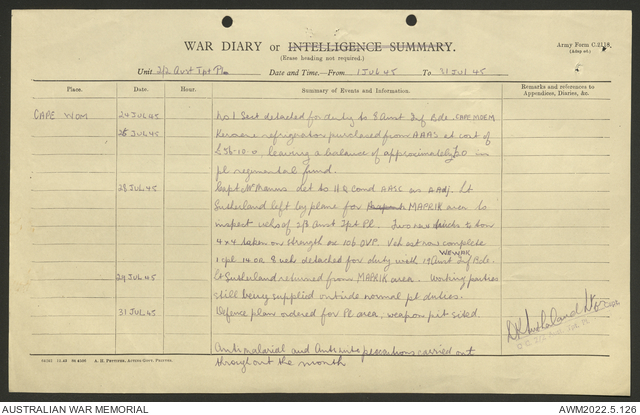 WAR DIARY or INTELLIGENCE SUMMARY.
(Erase heading not required.)
Army Form C.2118.
5
Unit 2/2 Aust Tpt Pl
Date and Time.—From 1 JUL 45 To 31 JUL 45
Place. Date. Hour. Summary of Events and Information. Remarks and references to Appendices, Diaries, &c.
CAPE WOM 24 JUL 45 No 1 Sect detached for duty to 8 Aust Inf Bde. CAPE MOEM
25 JUL 45 Kerosene refrigerator purchased from AAAS at cost of
£56-10-0, leaving a balance of approximately £20 in
pl regimental fund.
28 JUL 45 Capt McManus det to HQ Comd AASC as A/Adj. Lt
Sutherland left by plane for MAPRIK area to
inspect vehs of 2/3 Aust Tpt Pl. Two new 3 ton
4x4 taken on strength ex 106 OVP. Veh est now complete
1 cpl 14 OR 8 vehs detached for duty with 19 Aust Inf Bde.
WEWAK
29 JUL 45 Lt Sutherland returned from MAPRIK area. Working parties
still being supplied outside normal pl duties.
31 JUL 45 Defence plan ordered for Pl area, weapon pit sited.
Antimalarial and Antimite precautions carried out
throughout the month
A. H. Pettifer, Acting Govt. Printer.
AUSTRALIAN WAR MEMORIAL
AWM2022.5.126